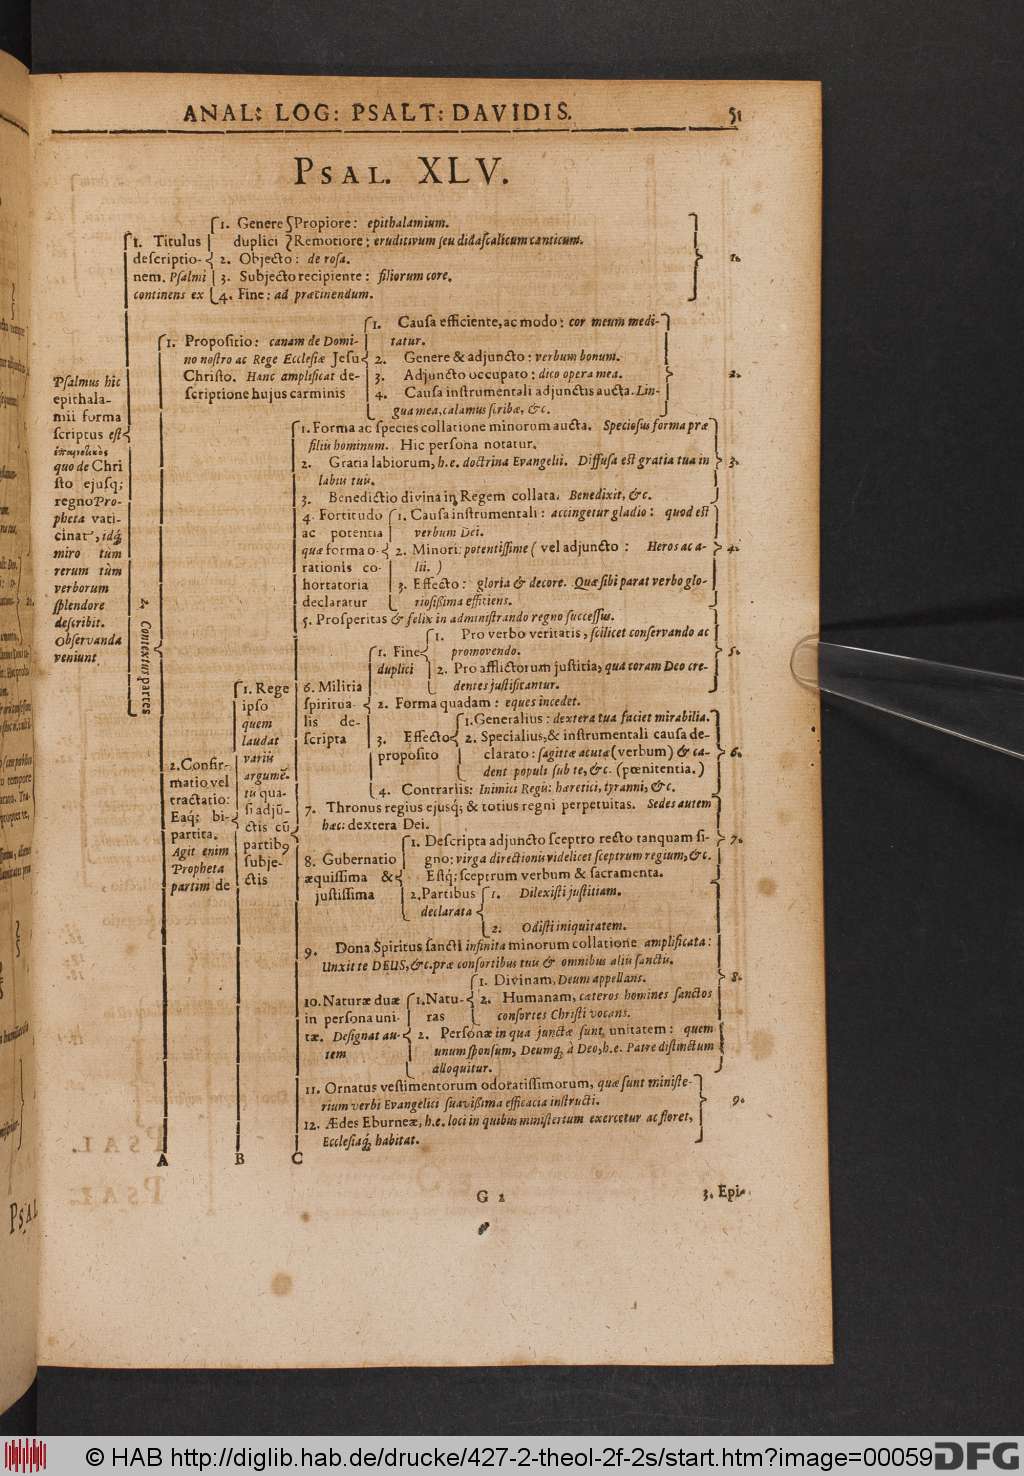 ANAL: LOG: PSALT: DAVIDIS. 51
PSAL. XLV.
Psalmus hic
epithala-
mii forma
scriptus est
quo de Chri
sto ejusq;
regno Pro-
pheta vati-
cinat᷑, idq́;
miro tùm
rerum tùm
verborum
splendore
describit.
Observanda
veniunt
1. Titulus
descriptio-
nem. Psalmi
continens ex
1. Genere
duplici
Propiore: epithalamium.
Remotiore: eruditivum seu didascalicum canticum.
2. Objecto: de rosa.
3. Subjecto recipiente: filiorum core.
4. Fine: ad præcinendum.
1.
2. Contextus partes
1. Propositio: canam de Domi-
no nostro ac Rege Ecclesiæ Jesu
Christo. Hanc amplificat de-
scriptione hujus carminis
1. Causa efficiente, ac modo: cor meum medi-
tatur.
2. Genere & adjuncto: verbum bonum.
3. Adjuncto occupato: dico opera mea.
4. Causa instrumentali adjunctis aucta. Lin-
gua mea, calamus scribæ, &c.
2.
2. Confir-
matio vel
tractatio:
Eaq; bi-
partita.
Agit enim
Propheta
partim de
1. Rege
ipso
quem
laudat
variis
argumē-
tis qua-
si adjū-
ctis cū
partibꝰ
subje-
ctis
1. Forma ac species collatione minorum aucta. Speciosus forma præ
filiis hominum. Hic persona notatur.
2. Gratia labiorum, h.e. doctrina Evangelii. Diffusa est gratia tua in
labiis tuis.
3. Benedictio divina in Regem collata. Benedixit, &c.
3.
4. Fortitudo
ac potentia
quæ forma o-
rationis co-
hortatoria
declaratur
1. Causa instrumentali: accingetur gladio: quod est
verbum Dei.
2. Minori: potentissime (vel adjuncto: Heros ac a-
lii.)
3. Effecto: gloria & decore. Quæ sibi parat verbo glo-
riosissima efficiens.
4.
5. Prosperitas & felix in administrando regno successus.
6. Militia
spiritua-
lis de-
scripta
1. Fine
duplici
1. Pro verbo veritatis, scilicet conservando ac
promovendo.
2. Pro afflictorum justitia, qua coram Deo cre-
dentes justificantur.
5.
2. Forma quadam: eques incedet.
3. Effecto
proposito
1. Generalius: dextera tua faciet mirabilia.
2. Specialius, & instrumentali causa de-
clarato: sagittæ acutæ (verbum) & ca-
dent populi sub te, &c. (pœnitentia.)
4. Contrariis: Inimici Regis: hæretici, tyranni, &c.
6.
7. Thronus regius ejusq; & totius regni perpetuitas. Sedes autem
hæc: dextera Dei.
8. Gubernatio
æquissima &
justissima
1. Descripta adjuncto sceptro recto tanquam si-
gno: virga directionis videlicet sceptrum regium, &c.
Estq; sceptrum verbum & sacramenta.
2. Partibus
declarata
1. Dilexisti justitiam.
2. Odisti iniquitatem.
7.
9. Dona Spiritus sancti infinita minorum collatione amplificata:
Unxit te DEUS, &c. præ consortibus tuis & omnibus aliis sanctis.
10. Naturæ duæ
in persona uni-
tæ. Designat au-
tem
1. Natu-
ras
1. Divinam, Deum appellans.
2. Humanam, cæteros homines sanctos
consortes Christi vocans.
2. Personæ in qua junctæ sunt, unitatem: quem
unum sponsum, Deumq́; à Deo, h.e. Patre distinctum
alloquitur.
8.
11. Ornatus vestimentorum odoratissimorum, quæ sunt ministe-
rium verbi Evangelici suavissima efficacia instructi.
12. Ædes Eburneæ, h.e. loci in quibus ministerium exercetur ac floret,
Ecclesiaq́; habitat.
9.
A B C
G 2
3. Epi-
© HAB http://diglib.hab.de/drucke/427-2-theol-2f-2s/start.htm?image=00059
DFG